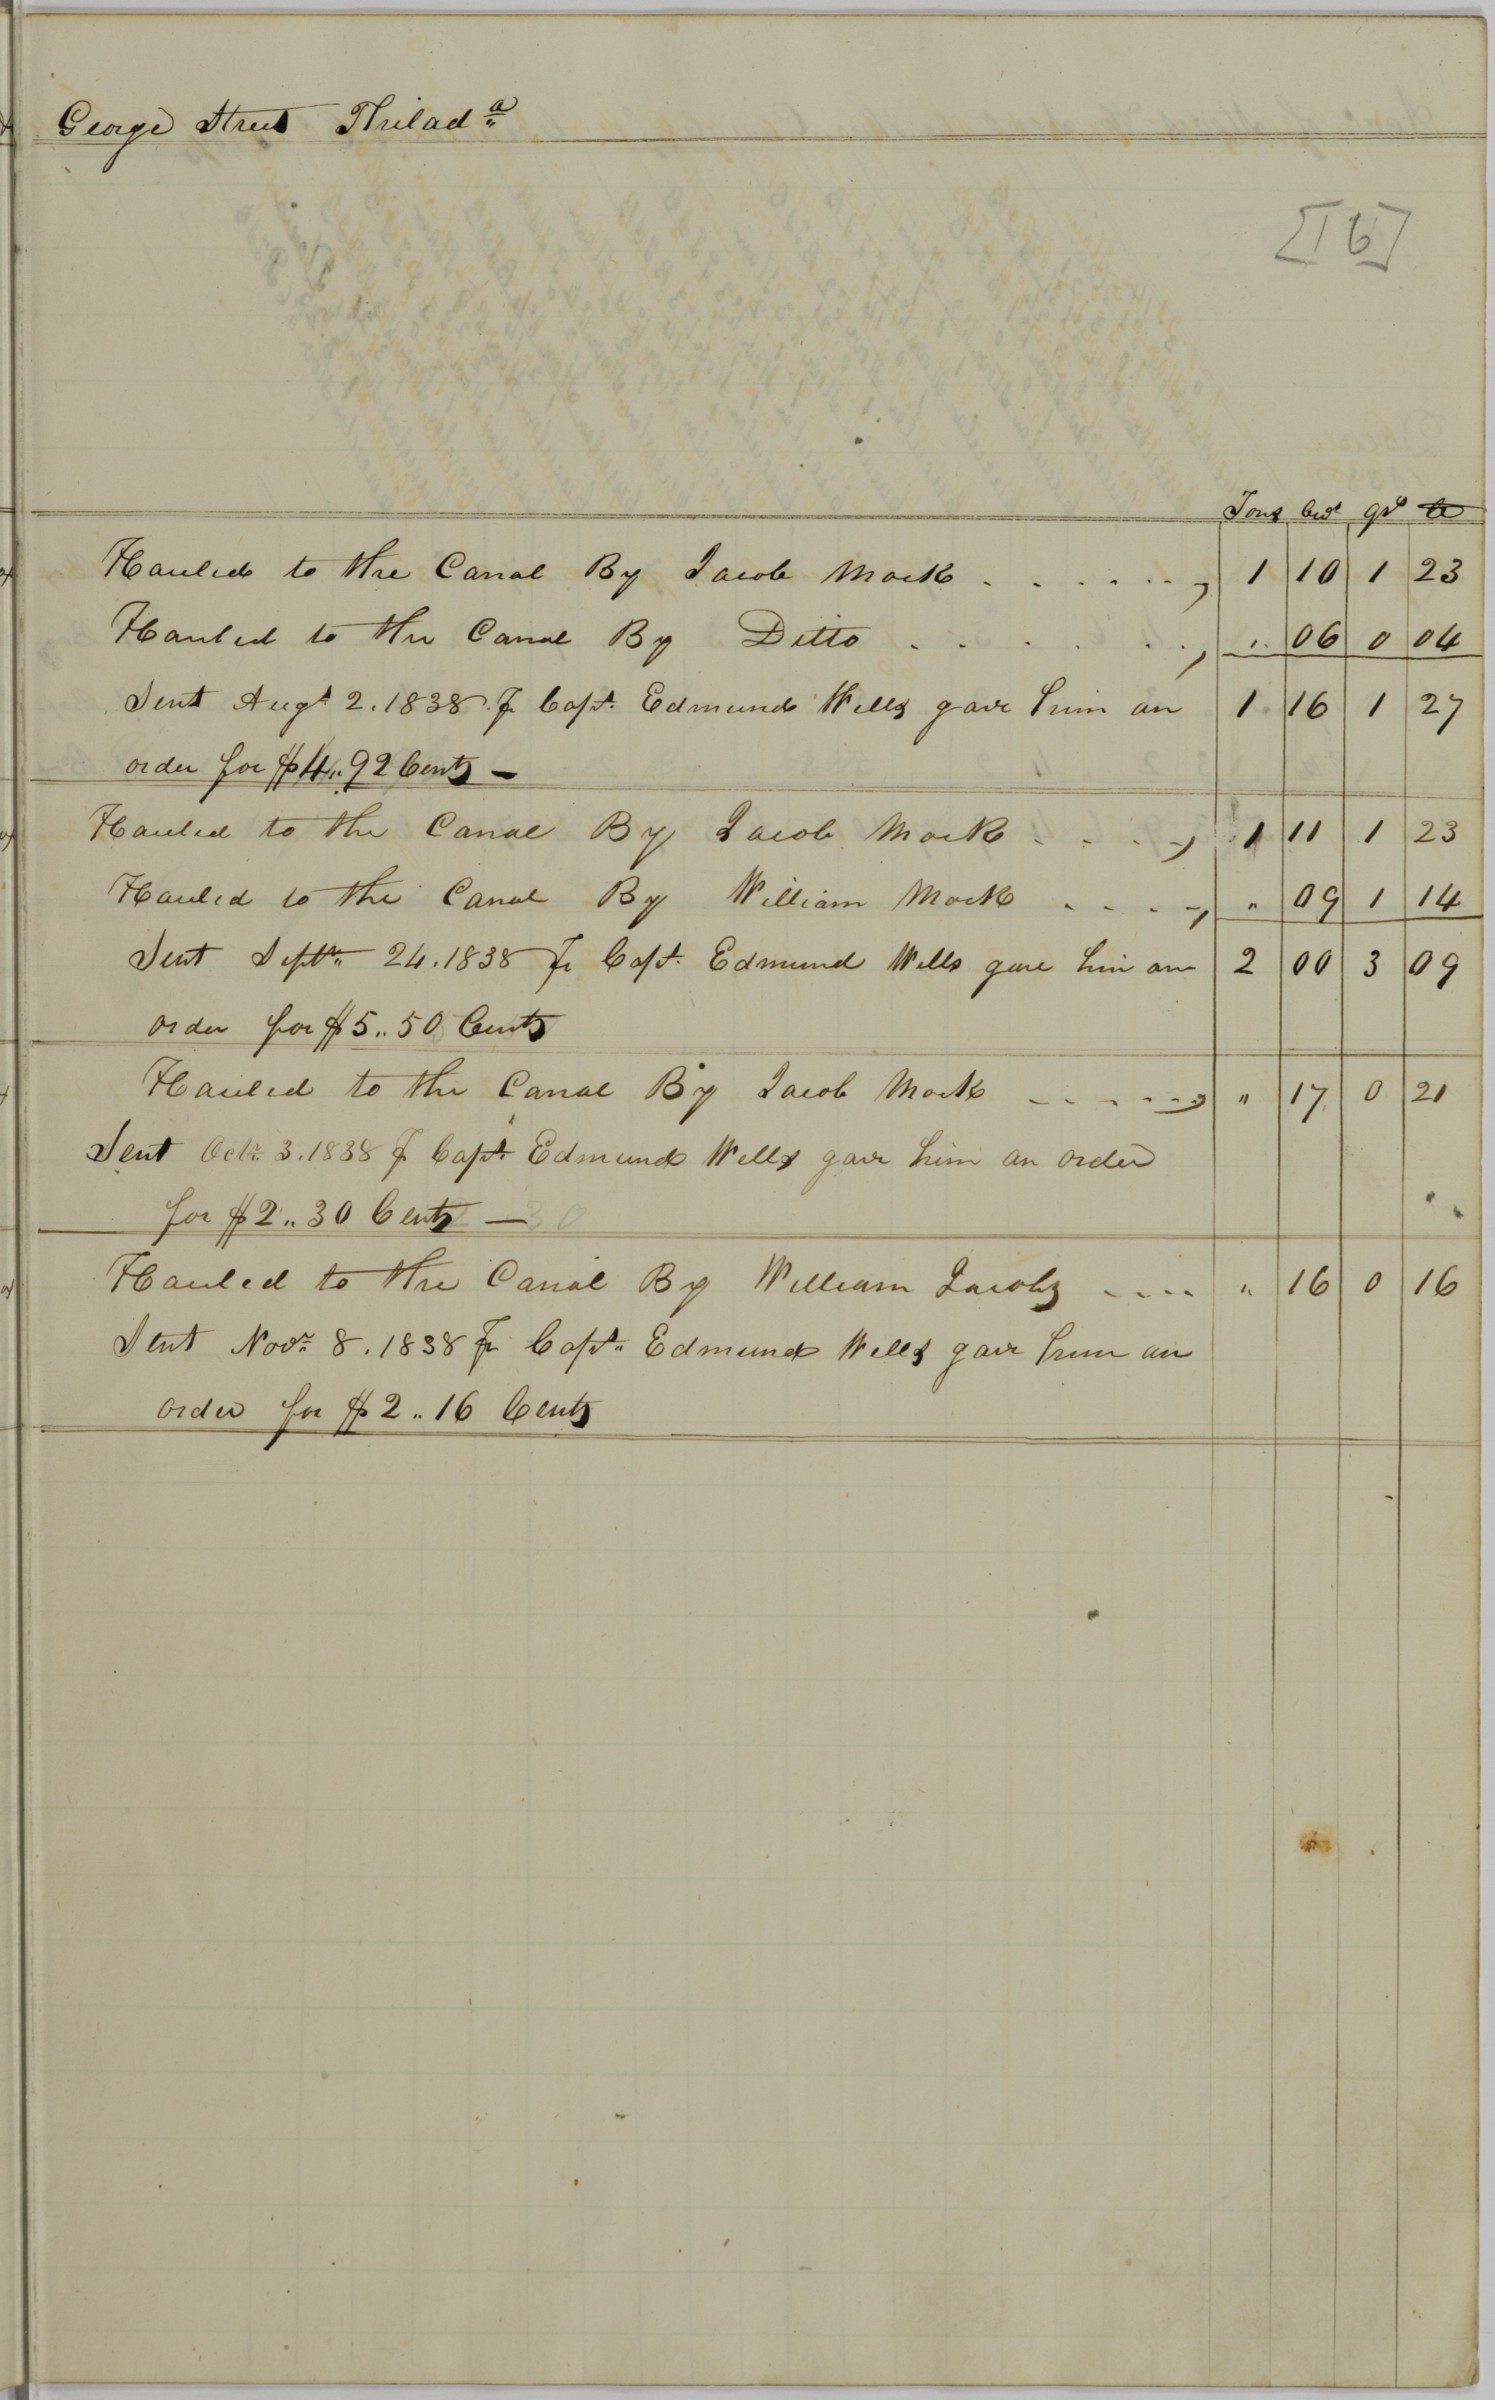 George Street Philada
[16]
Tons Cwt qrs lb
Hauled to the Canal By Jacob Mock . . . . . . , 1 10 1 23
Hauled to the Canal By Ditto . . . . . . , " 06 0 04
Sent Augt 2. 1838 Capt. Edmund Wells gave him an 1 16 1 27
order for $4.. 92 Cents —
Hauled to the Canal By Jacob Mock . . . . , 1 11 1 23
Hauled to the Canal By William Mock . . . . , " 09 1 14
Sent Septr 24. 1838 Capt. Edmund Wells gave him an 2 00 3 09
order for $5.. 50 Cents
Hauled to the Canal By Jacob Mock . . . . . . , " 17 0 21
Sent Octr 3. 1838 Capt. Edmund Wells gave him an order
for $2.. 30 Cents —
Hauled to the Canal By William Jacobs . . . . " 16 0 16
Sent Novr 8. 1838 Capt. Edmund Wells gave him an
order for $2.. 16 Cents